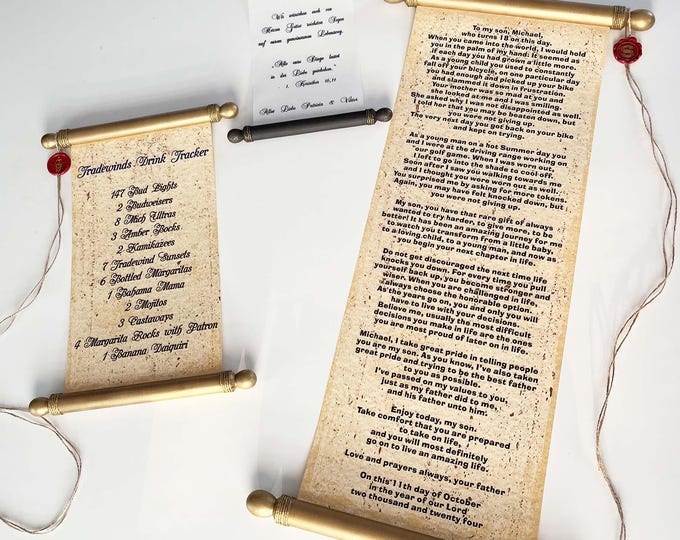 Tradewinds Drink Tracker
147 Bud Lights
2 Budweisers
8 Mich Ultras
3 Amber Bocks
2 Kamikazees
7 Tradewind Sunsets
6 Bottled Margaritas
1 Bahama Mama
2 Mojitos
3 Castaways
4 Margarita Rocks with Patron
1 Banana Daiquiri
Wir wünschen euch von
Herzen Gottes reichsten Segen
auf eurem gemeinsamen Lebensweg.
"Alle eure Dinge lasset
in der Liebe geschehen."
1. Korinther 16,14
Alles Liebe Patricia & Viktor
To my son, Michael,
who turns 18 on this day.
When you came into the world, I would hold
you in the palm of my hand. It seemed as
if each day you had grown a little more.
As a young child you used to constantly
fall off your bicycle, on one particular day
you had enough and picked up your bike
and slammed it down in frustration.
Your mother was so mad at you and
she looked at me and I was smiling.
She asked why I was not disappointed as well.
I told her that you may be beaten down, but
you were not giving up.
The very next day you got back on your bike
and kept on trying.
As a young man on a hot Summer day you
and I were at the driving range working on
our golf game. When I was worn out,
I left to go into the shade to cool off.
Soon after I saw you walking towards me
and I thought you were worn out as well.
You surprised me by asking for more tokens.
Again, you may have felt knocked down, but
you were not giving up.
My son, you have that rare gift of always
wanted to try harder, to give more, to be
better! It has been an amazing journey for me
to watch you transform from a little baby,
to a loving child, to a young man, and now as
you begin your next chapter in life.
Do not get discouraged the next time life
knocks you down. For every time you pull
yourself back up, you become stronger and
wiser. When you are challenged in life,
always choose the honorable option.
As the years go on, you and only you will
have to live with your decisions.
Believe me, usually the most difficult
decisions you make in life are the ones
you are most proud of later on in life.
Michael, I take great pride in telling people
you are my son. As you know, I've also taken
great pride and trying to be the best father
to you as possible.
I've passed on my values to you,
just as my father did to me,
and his father unto him.
Enjoy today, my son.
Take comfort that you are prepared
to take on life,
and you will most definitely
go on to live an amazing life.
Love and prayers always, your father
On this 11th day of October
in the year of our Lord
two thousand and twenty four
S